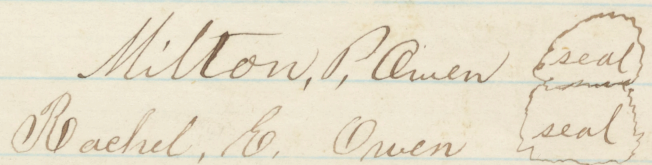 Milton, P, Owen seal
Rachel, E. Owen seal